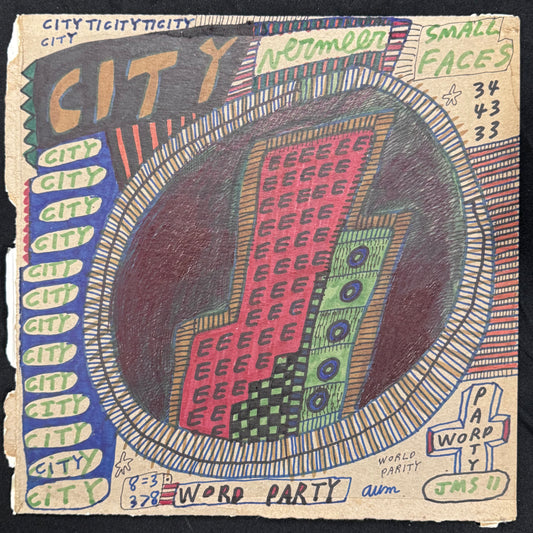 CITYTICITYTICITY
CITY
CITY
vermeer
SMALL
FACES
34
43
33
CITY
CITY
CITY
CITY
CITY
CITY
CITY
CITY
CITY
CITY
CITY
CITY
E E E E E
E E E E E
E E E E E
E E E E E
E E E E
E E E E
E E E E
E E E E
E E E E E E
E E E E E
E E E E
E E E
E E
PARTY
WORD
WORLD
PARITY
8=3
378
WORD PARTY
aum
JMS 11